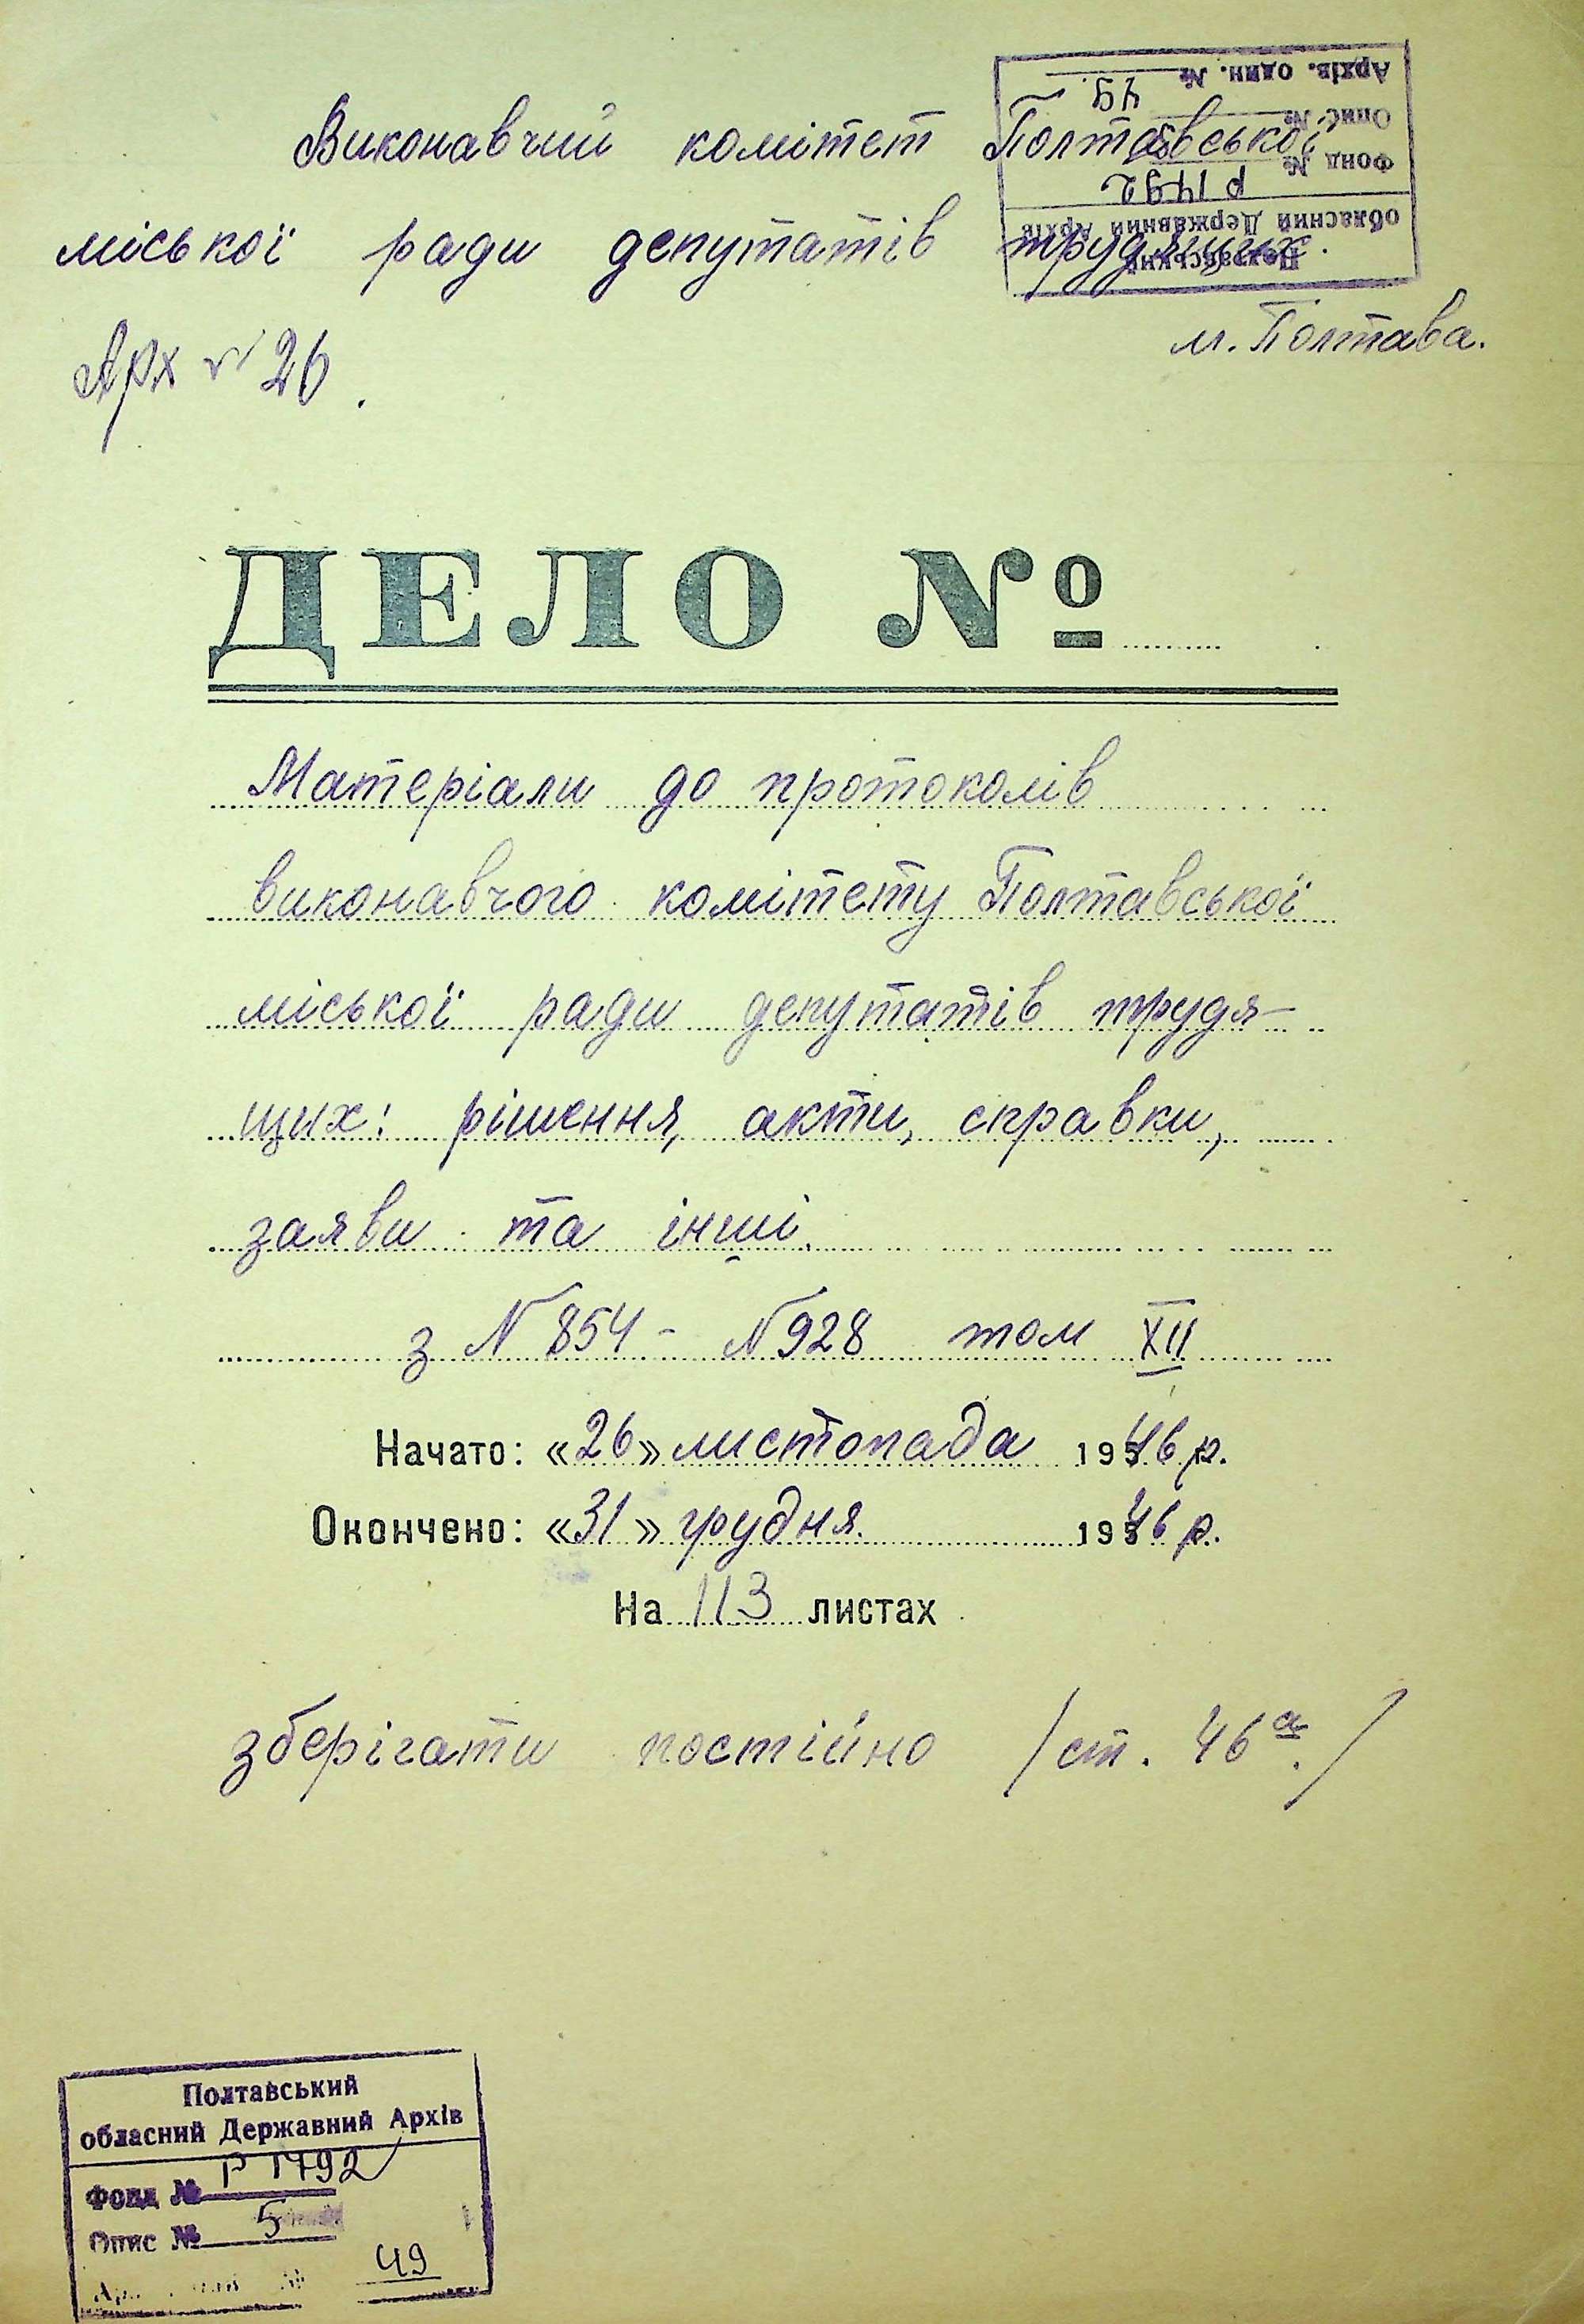 Виконавчий комітет Полтавської
міської ради депутатів трудящих.
м. Полтава.
Арх № 26.
Полтавський
обласний Державний Архів
Фонд № Р 1792
Опис №
Архів. один. № 49
ДЕЛО №
Матеріали до протоколів
виконавчого комітету Полтавської
міської ради депутатів трудя-
щих: рішення, акти, справки,
заяви та інші.
з N 854 - N 928 том XII
Начато: «26» листопада 1946 р.
Окончено: «31» грудня 1946 р.
На 113 листах
зберігати постійно /ст. 46а./
Полтавський
обласний Державний Архів
Фонд № Р 1792
Опис № 5
49